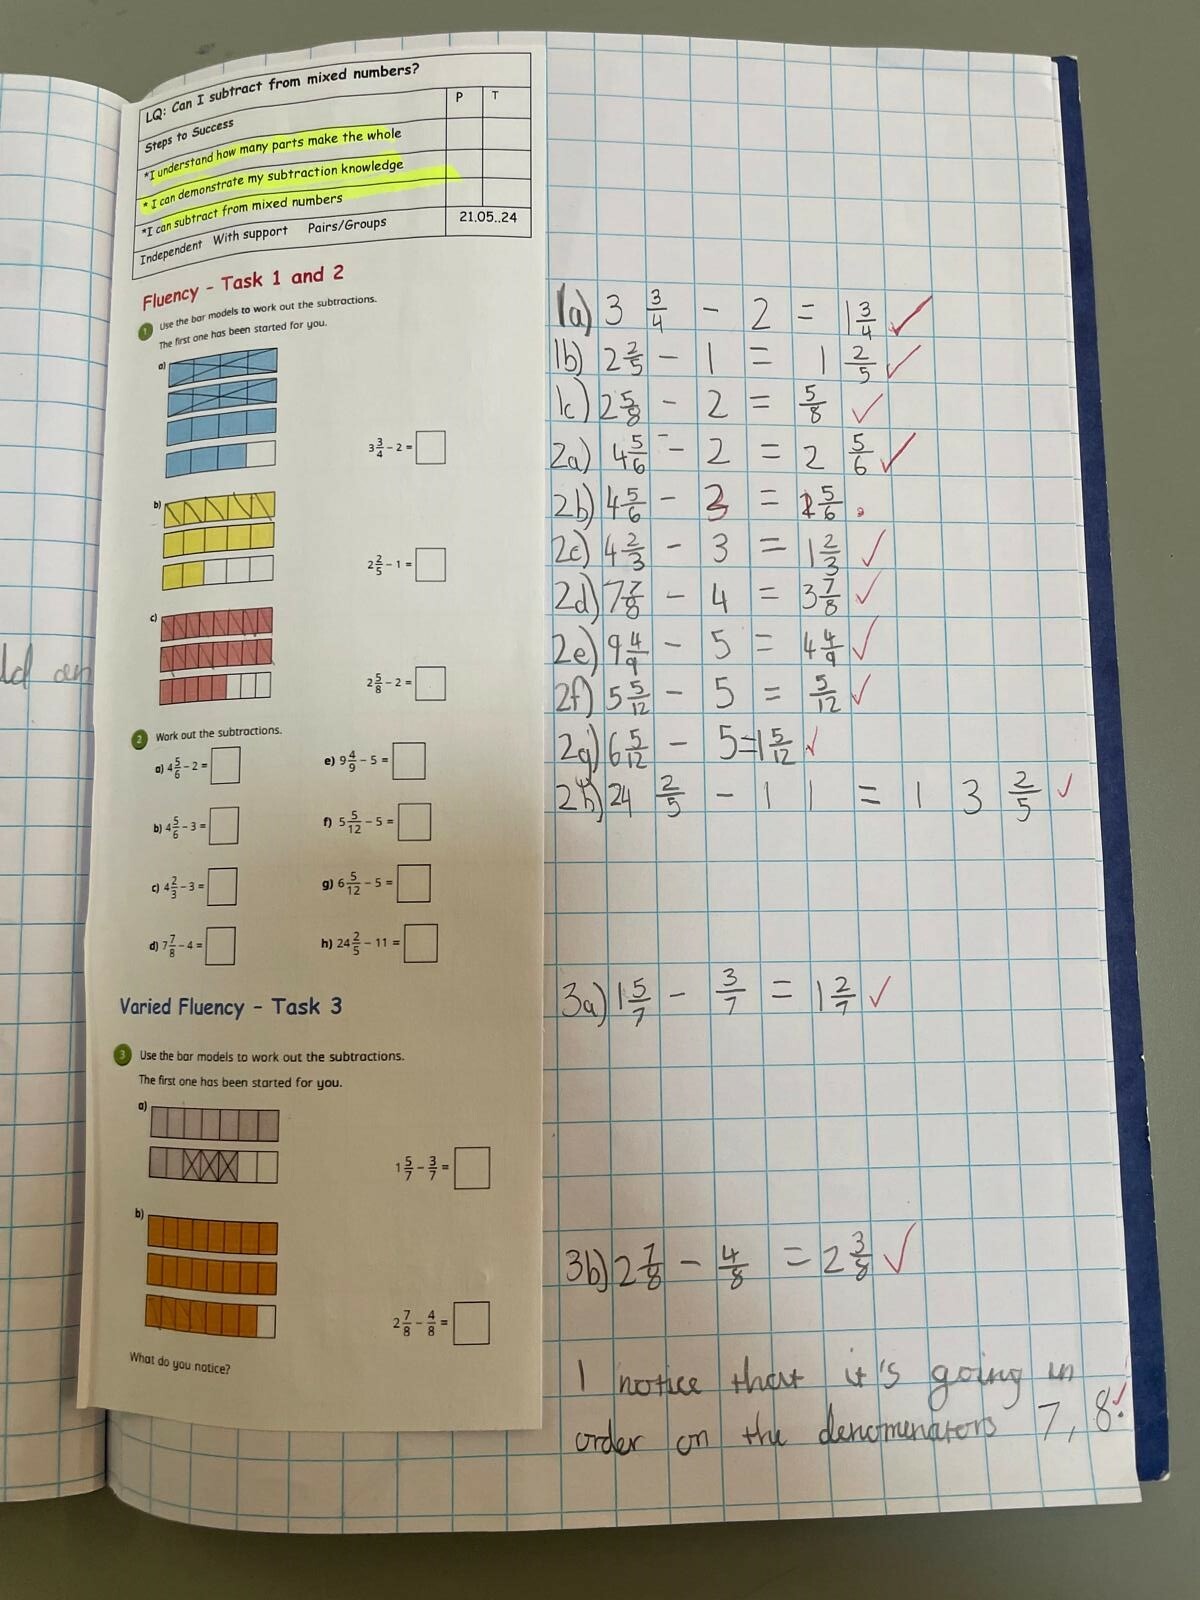 LQ: Can I subtract from mixed numbers?
Steps to Success
P
T
*I understand how many parts make the whole
* I can demonstrate my subtraction knowledge
*I can subtract from mixed numbers
Independent With support Pairs/Groups
21.05..24
Fluency - Task 1 and 2
1 Use the bar models to work out the subtractions.
The first one has been started for you.
a)
3 3/4 - 2 =
b)
2 2/5 - 1 =
c)
2 5/8 - 2 =
2 Work out the subtractions.
a) 4 5/6 - 2 =
e) 9 4/9 - 5 =
b) 4 5/6 - 3 =
f) 5 5/12 - 5 =
c) 4 2/3 - 3 =
g) 6 5/12 - 5 =
d) 7 7/8 - 4 =
h) 24 2/5 - 11 =
Varied Fluency - Task 3
3 Use the bar models to work out the subtractions.
The first one has been started for you.
a)
1 5/7 - 3/7 =
b)
2 7/8 - 4/8 =
What do you notice?
ld an
1a) 3 3/4 - 2 = 1 3/4 ✓
1b) 2 2/5 - 1 = 1 2/5 ✓
1c) 2 5/8 - 2 = 5/8 ✓
2a) 4 5/6 - 2 = 2 5/6 ✓
2b) 4 5/6 - 3 = 1 5/6 .
2c) 4 2/3 - 3 = 1 2/3 ✓
2d) 7 7/8 - 4 = 3 7/8 ✓
2e) 9 4/9 - 5 = 4 4/9 ✓
2f) 5 5/12 - 5 = 5/12 ✓
2g) 6 5/12 - 5 = 1 5/12 ✓
2h) 24 2/5 - 11 = 13 2/5 ✓
3a) 1 5/7 - 3/7 = 1 2/7 ✓
3b) 2 7/8 - 4/8 = 2 3/8 ✓
I notice that it's going in
order on the denominators 7, 8. ✓